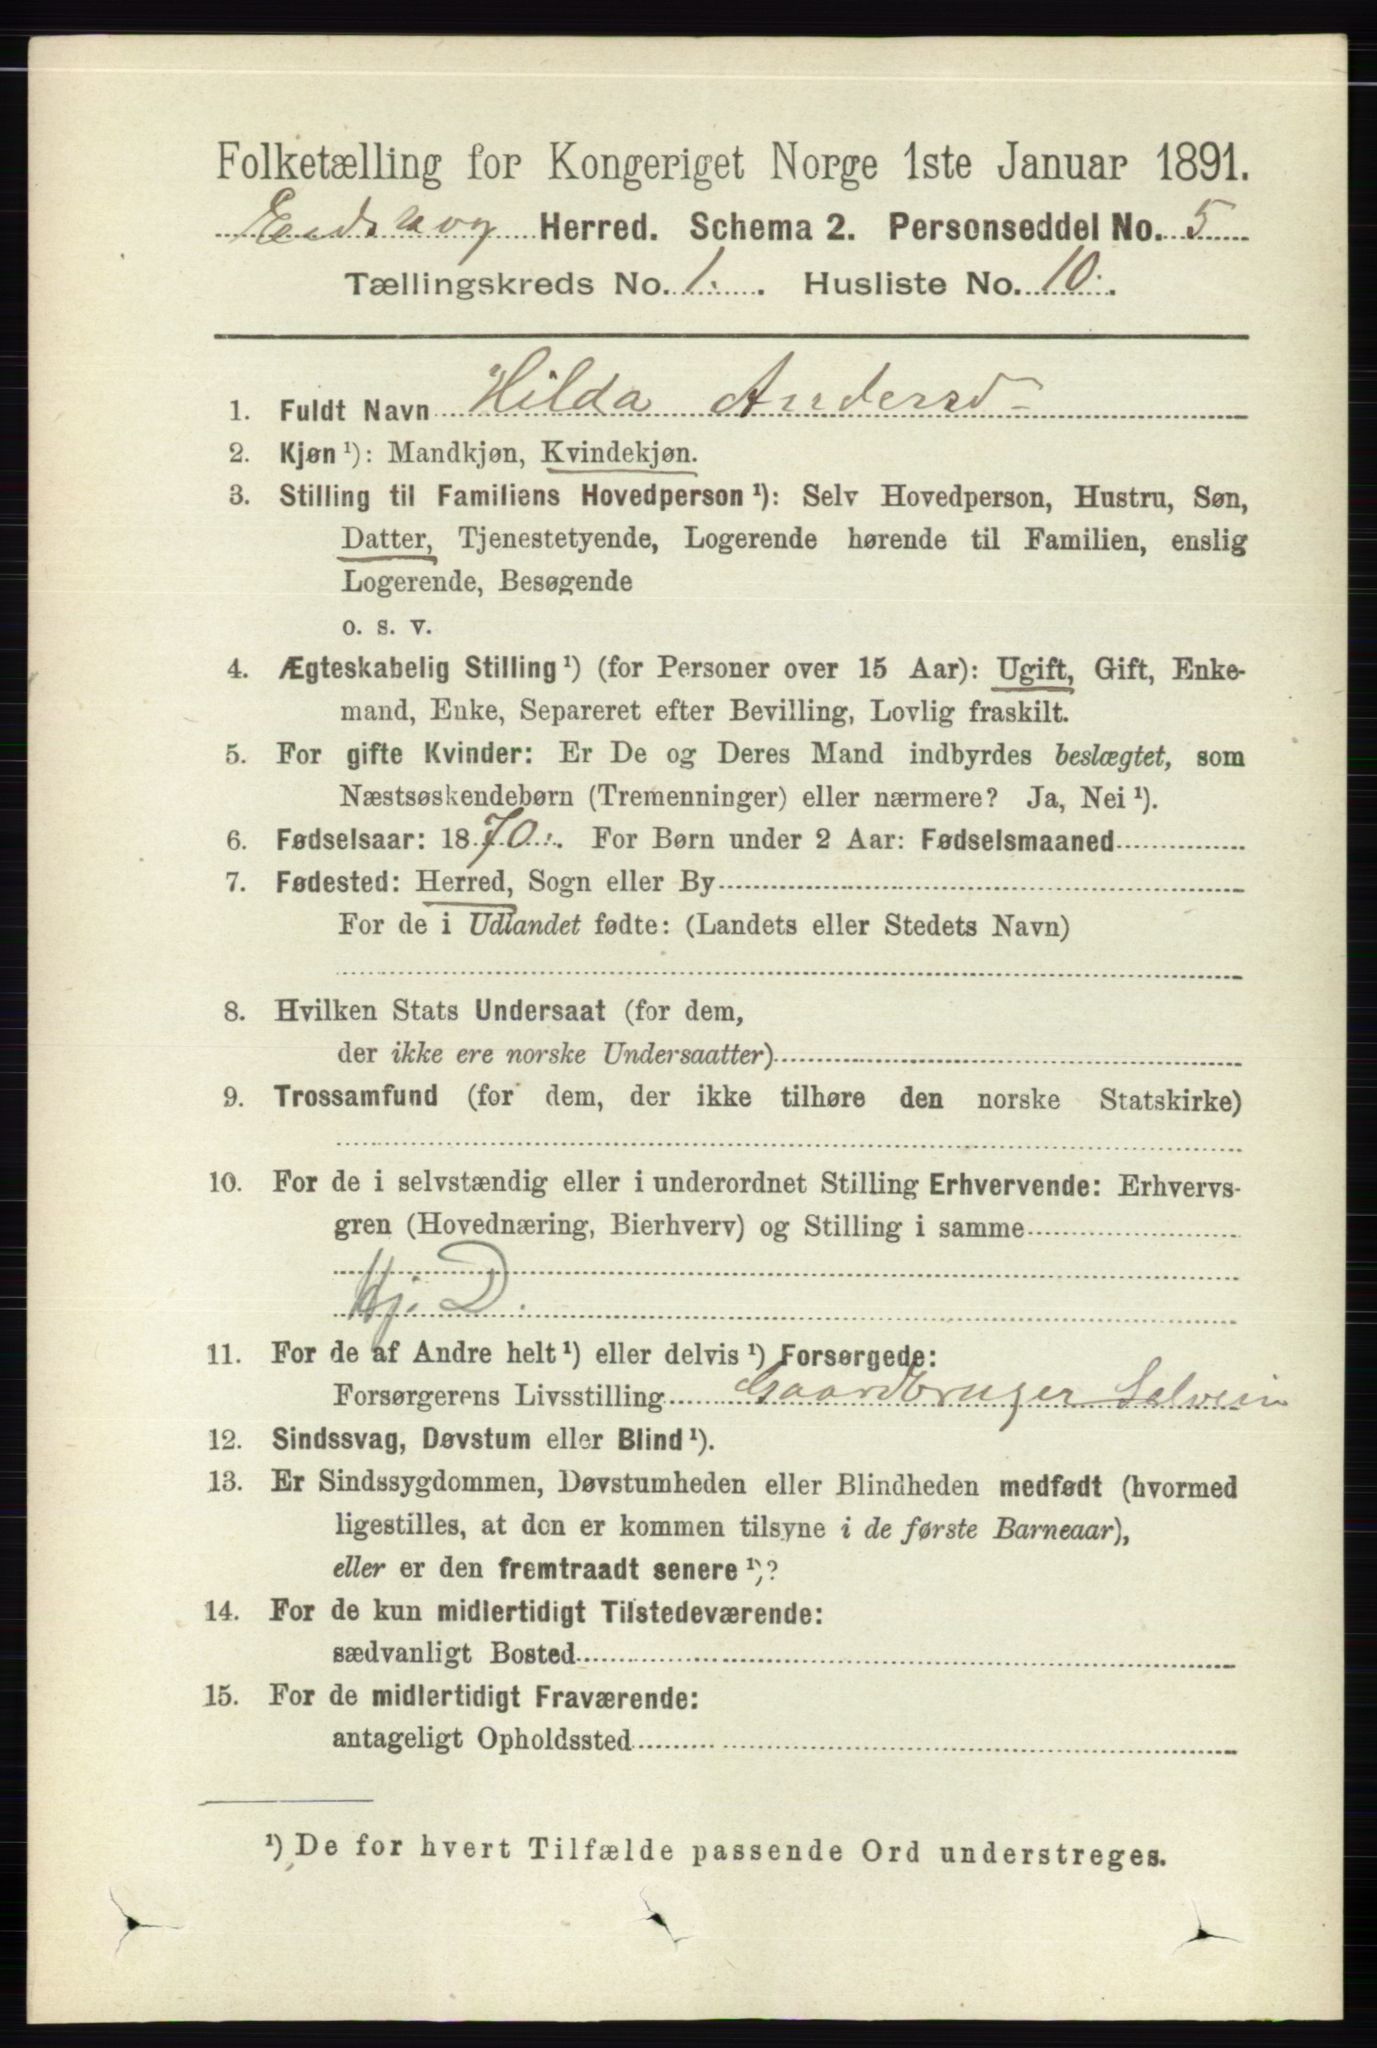 Folketælling for Kongeriget Norge 1ste Januar 1891.
Eidskog Herred. Schema 2. Personseddel No. 5
Tællingskreds No. 1. Husliste No. 10.
1. Fuldt Navn Hilda Andersd
2. Kjøn ¹): Mandkjøn, Kvindekjøn.
3. Stilling til Familiens Hovedperson ¹): Selv Hovedperson, Hustru, Søn,
Datter, Tjenestetyende, Logerende hørende til Familien, enslig
Logerende, Besøgende
o. s. v.
4. Ægteskabelig Stilling ¹) (for Personer over 15 Aar): Ugift, Gift, Enke-
mand, Enke, Separeret efter Bevilling, Lovlig fraskilt.
5. For gifte Kvinder: Er De og Deres Mand indbyrdes beslægtet, som
Næstsøskendebørn (Tremenninger) eller nærmere? Ja, Nei ¹).
6. Fødselsaar: 1870. For Børn under 2 Aar: Fødselsmaaned
7. Fødested: Herred, Sogn eller By
For de i Udlandet fødte: (Landets eller Stedets Navn)
8. Hvilken Stats Undersaat (for dem,
der ikke ere norske Undersaatter)
9. Trossamfund (for dem, der ikke tilhøre den norske Statskirke)
10. For de i selvstændig eller i underordnet Stilling Erhvervende: Erhvervs-
gren (Hovednæring, Bierhverv) og Stilling i samme
Hj. D.
11. For de af Andre helt ¹) eller delvis ¹) Forsørgede:
Forsørgerens Livsstilling Gaardbruger Selveier
12. Sindssvag, Døvstum eller Blind ¹).
13. Er Sindssygdommen, Døvstumheden eller Blindheden medfødt (hvormed
ligestilles, at den er kommen tilsyne i de første Barneaar),
eller er den fremtraadt senere ¹)?
14. For de kun midlertidigt Tilstedeværende:
sædvanligt Bosted
15. For de midlertidigt Fraværende:
antageligt Opholdssted
¹) De for hvert Tilfælde passende Ord understreges.